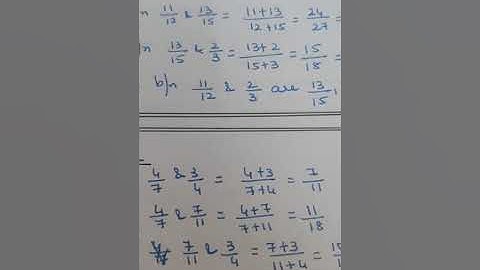 n 11/12 & 13/15 = 11+13/12+15 = 24/27 =
n 13/15 & 2/3 = 13+2/15+3 = 15/18 =
b/n 11/12 & 2/3 are 13/15,
4/7 & 3/4 = 4+3/7+4 = 7/11
4/7 & 7/11 = 4+7/7+11 = 11/18
7/11 & 3/4 = 7+3/11+4 =